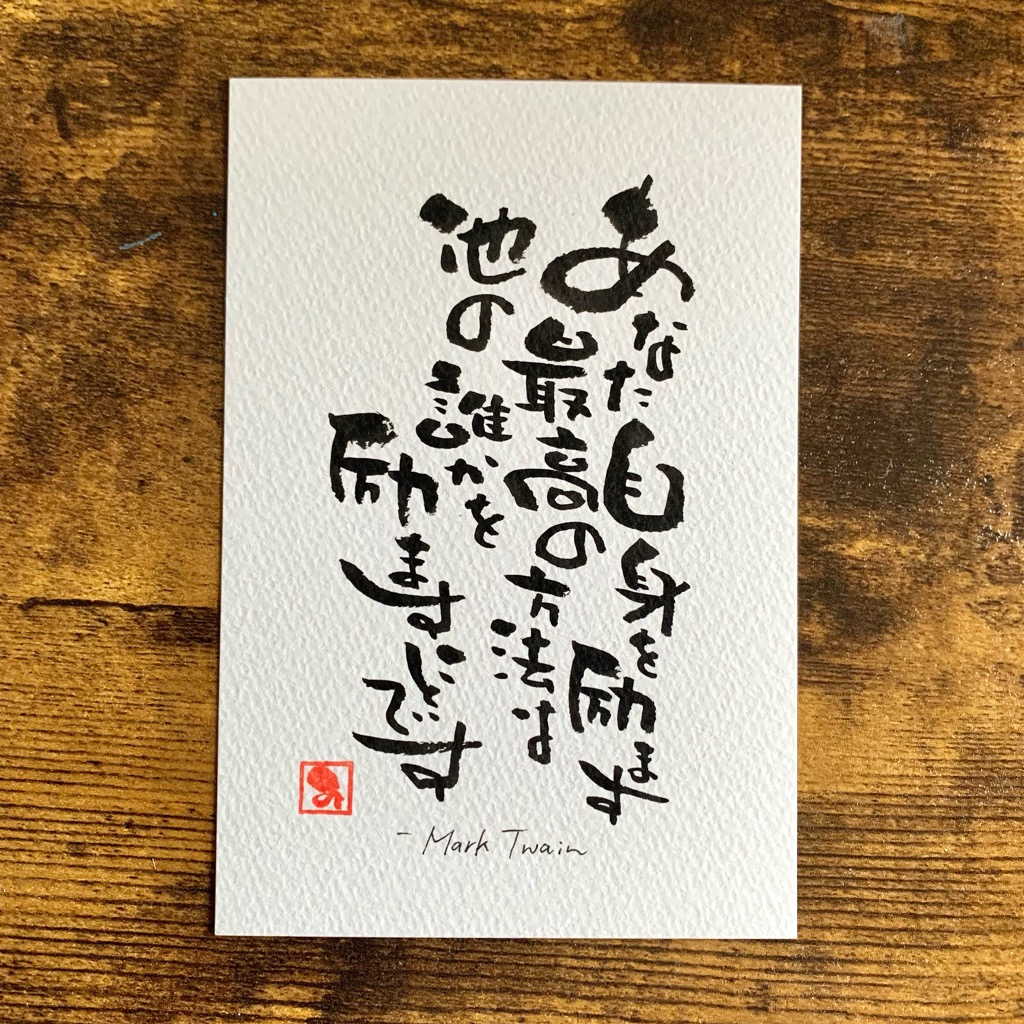 あなた自身を励ます
最高の方法は
池の誰かを
励ますことです
- Mark Twain